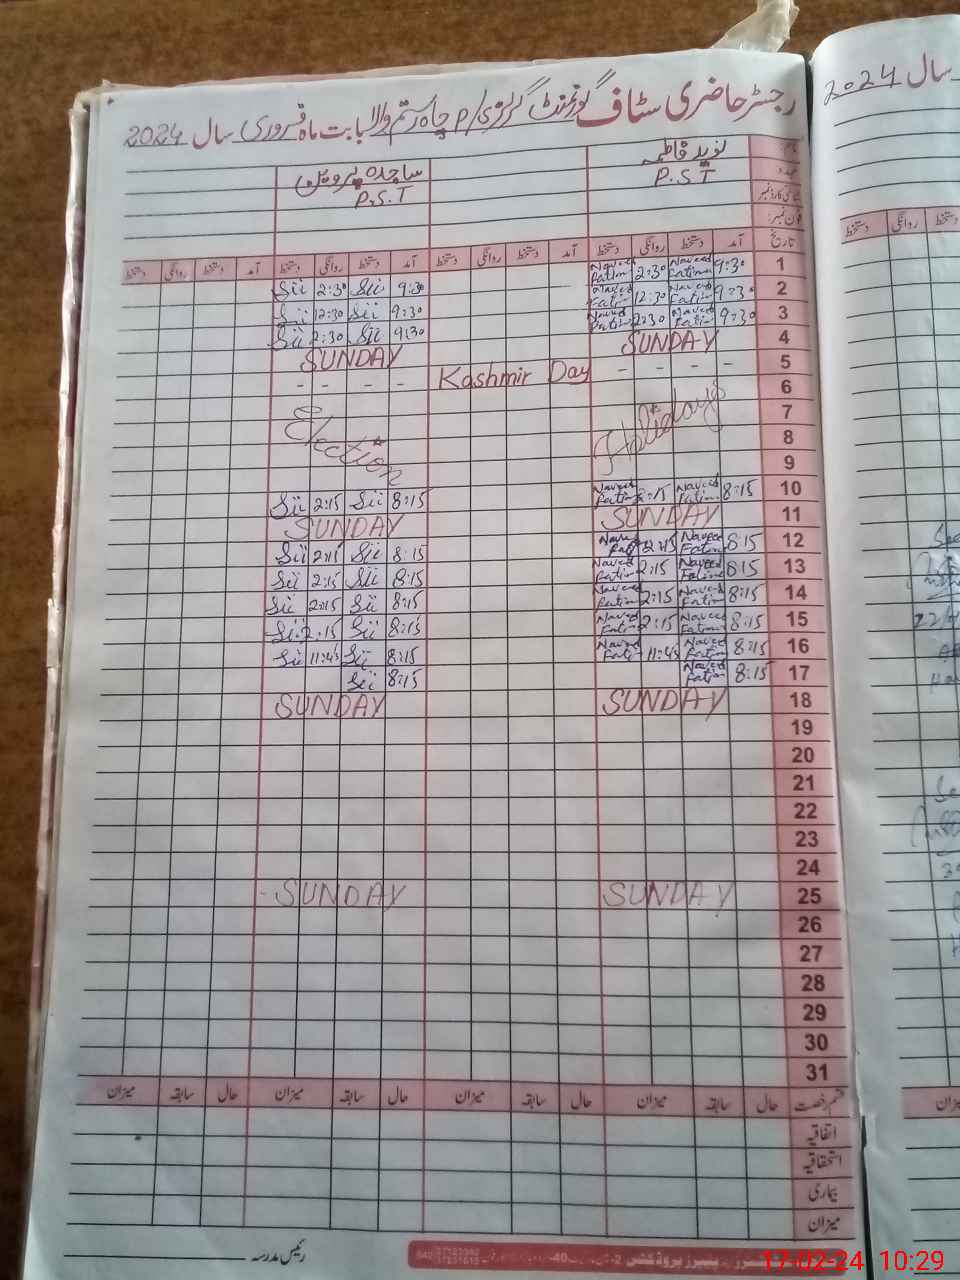 رجسٹر حاضری سٹاف گورنمنٹ گرلز P/ چاہ رستم والا بابت ماہ فروری سال 2024
نوید فاطمہ ساجدہ پروین
P.S.T P.S.T
فون نمبر:
تاریخ آمد دستخط روانگی دستخط آمد دستخط روانگی دستخط آمد دستخط روانگی دستخط آمد دستخط روانگی دستخط
1 9:30 Naveed Fatima 2:30 Naveed Fatima 9:30 Sii 2:30 Sii
2 9:30 Naveed Fatima 12:30 Naveed Fatima 9:30 Sii 12:30 Sii
3 9:30 Naveed Fatima 2:30 Naveed Fatima 9:30 Sii 2:30 Sii
4 SUNDAY SUNDAY
5 - - - - Kashmir Day - - - -
6
7 Holidays Election
8
9
10 8:15 Naveed Fatima 2:15 Naveed Fatima 8:15 Sii 2:15 Sii
11 SUNDAY SUNDAY
12 8:15 Naveed Fatima 2:15 Naveed Fati 8:15 Sii 2:15 Sii
13 8:15 Naveed Fatima 2:15 Naveed Fatima 8:15 Sii 2:15 Sii
14 8:15 Naveed Fatima 2:15 Naveed Fatima 8:15 Sii 2:15 Sii
15 8:15 Naveed Fatima 2:15 Naveed Fatima 8:15 Sii 2:15 Sii
16 8:15 Naveed Fatima 11:45 Naveed Fati 8:15 Sii 11:45 Sii
17 8:15 Naveed Fatima 8:15 Sii
18 SUNDAY SUNDAY
19
20
21
22
23
24
25 SUNDAY SUNDAY
26
27
28
29
30
31
قسم رخصت حال سابقہ میزان حال سابقہ میزان حال سابقہ میزان حال سابقہ میزان
اتفاقیہ
استحقاقیہ
بیماری
میزان
رئیس مدرسہ
17-02-24 10:29
سال 2024
دستخط روانگی دستخط